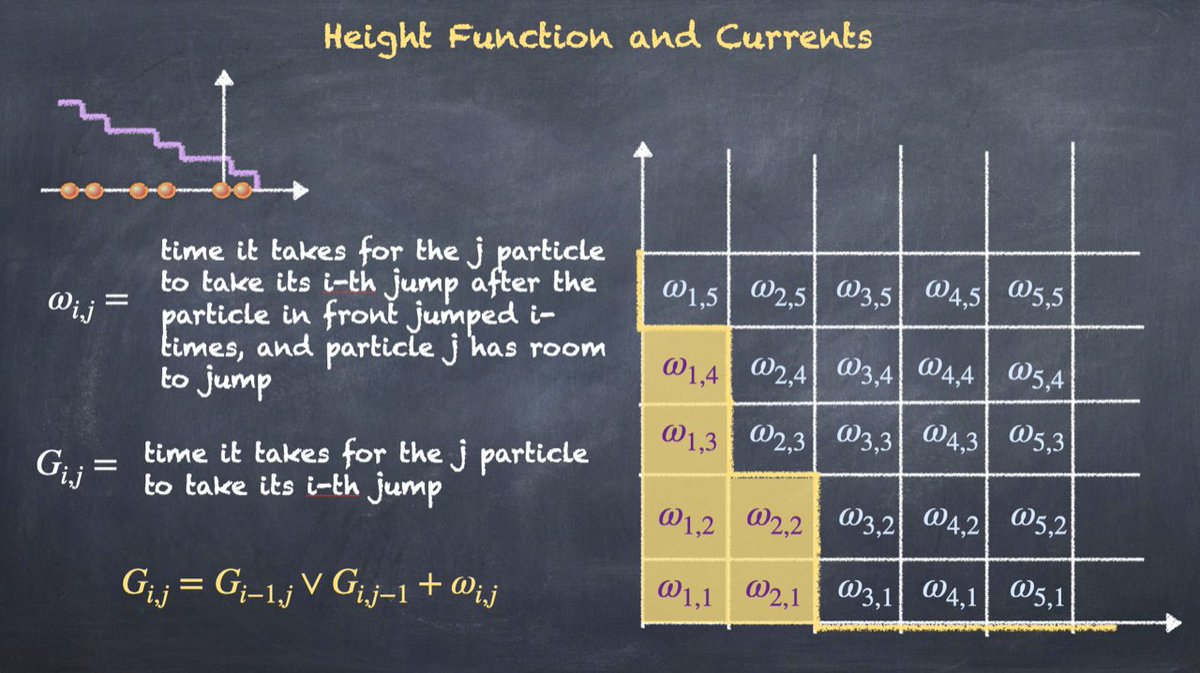 Height Function and Currents
ω_{i,j} =
time it takes for the j particle
to take its i-th jump after the
particle in front jumped i-
times, and particle j has room
to jump
G_{i,j} =
time it takes for the j particle
to take its i-th jump
G_{i,j} = G_{i−1,j} ∨ G_{i,j−1} + ω_{i,j}
ω_{1,5} ω_{2,5} ω_{3,5} ω_{4,5} ω_{5,5}
ω_{1,4} ω_{2,4} ω_{3,4} ω_{4,4} ω_{5,4}
ω_{1,3} ω_{2,3} ω_{3,3} ω_{4,3} ω_{5,3}
ω_{1,2} ω_{2,2} ω_{3,2} ω_{4,2} ω_{5,2}
ω_{1,1} ω_{2,1} ω_{3,1} ω_{4,1} ω_{5,1}